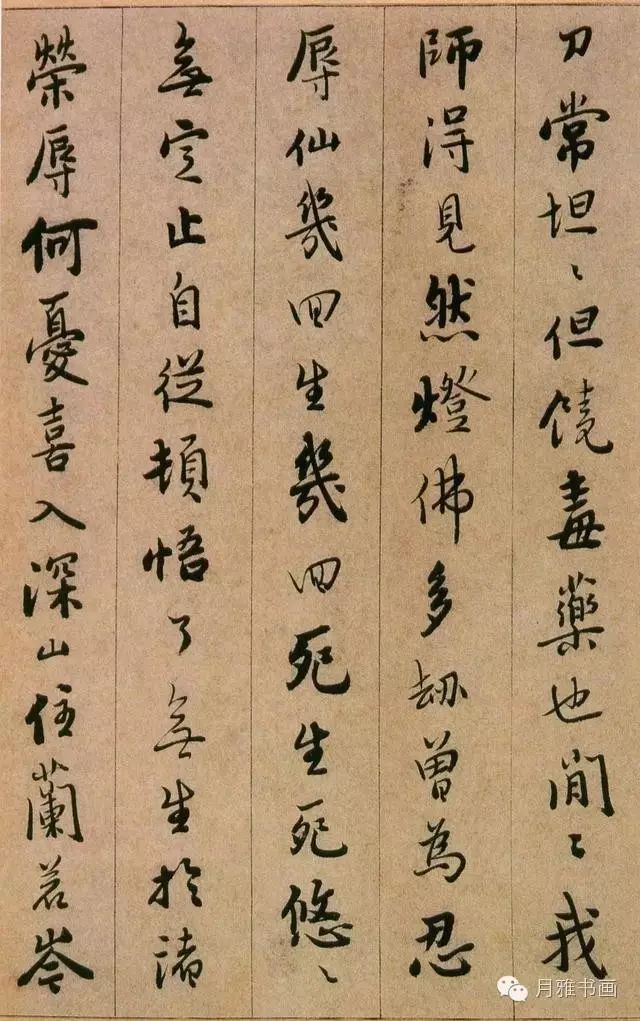 刀常坦〻但饒毒藥也閒〻我
師得見然燈佛多劫曾為忍
辱仙幾回生幾回死生死悠〻
無定止自從頓悟了無生於諸
榮辱何憂喜入深山住蘭若岑
月雅书画